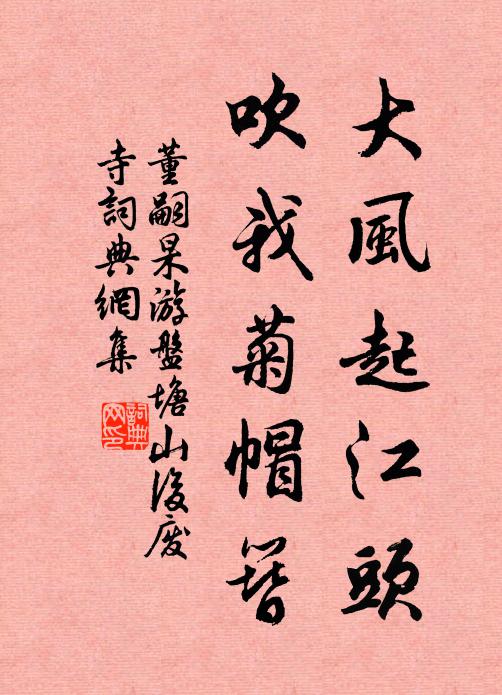 大風起江頭
吹我菊帽簪
董嗣杲游盤塘山後廢
寺詞典網集
詞典網印